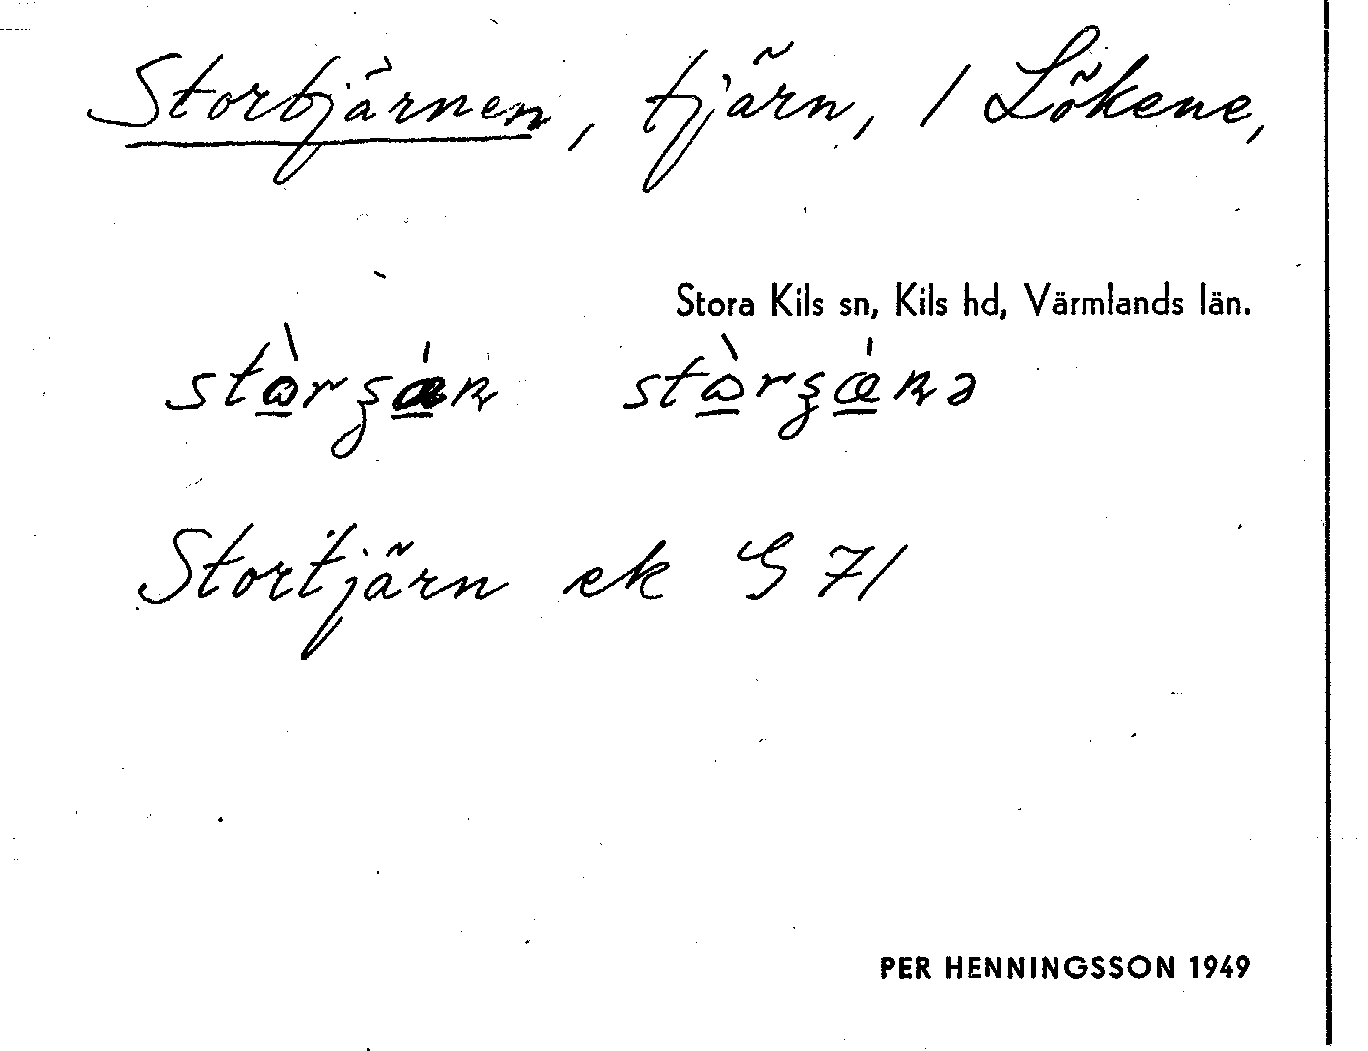 Stortjärnen, tjärn, / Lökene,
Stora Kils sn, Kils hd, Värmlands län.
Stortjärn ek S 71
PER HENNINGSSON 1949